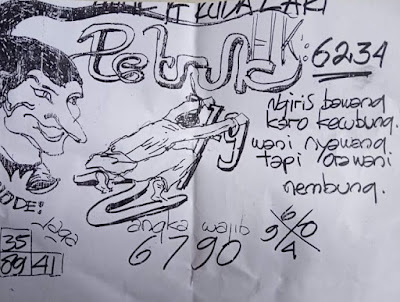 KUDA LARI
FIK: 6234
ngiris bawang
karo kecubung.
wani nyawang
tapi ora wani
nembung.
KODE:
Jaga
35
89 41
angka wajib
6790
6
9 0
4